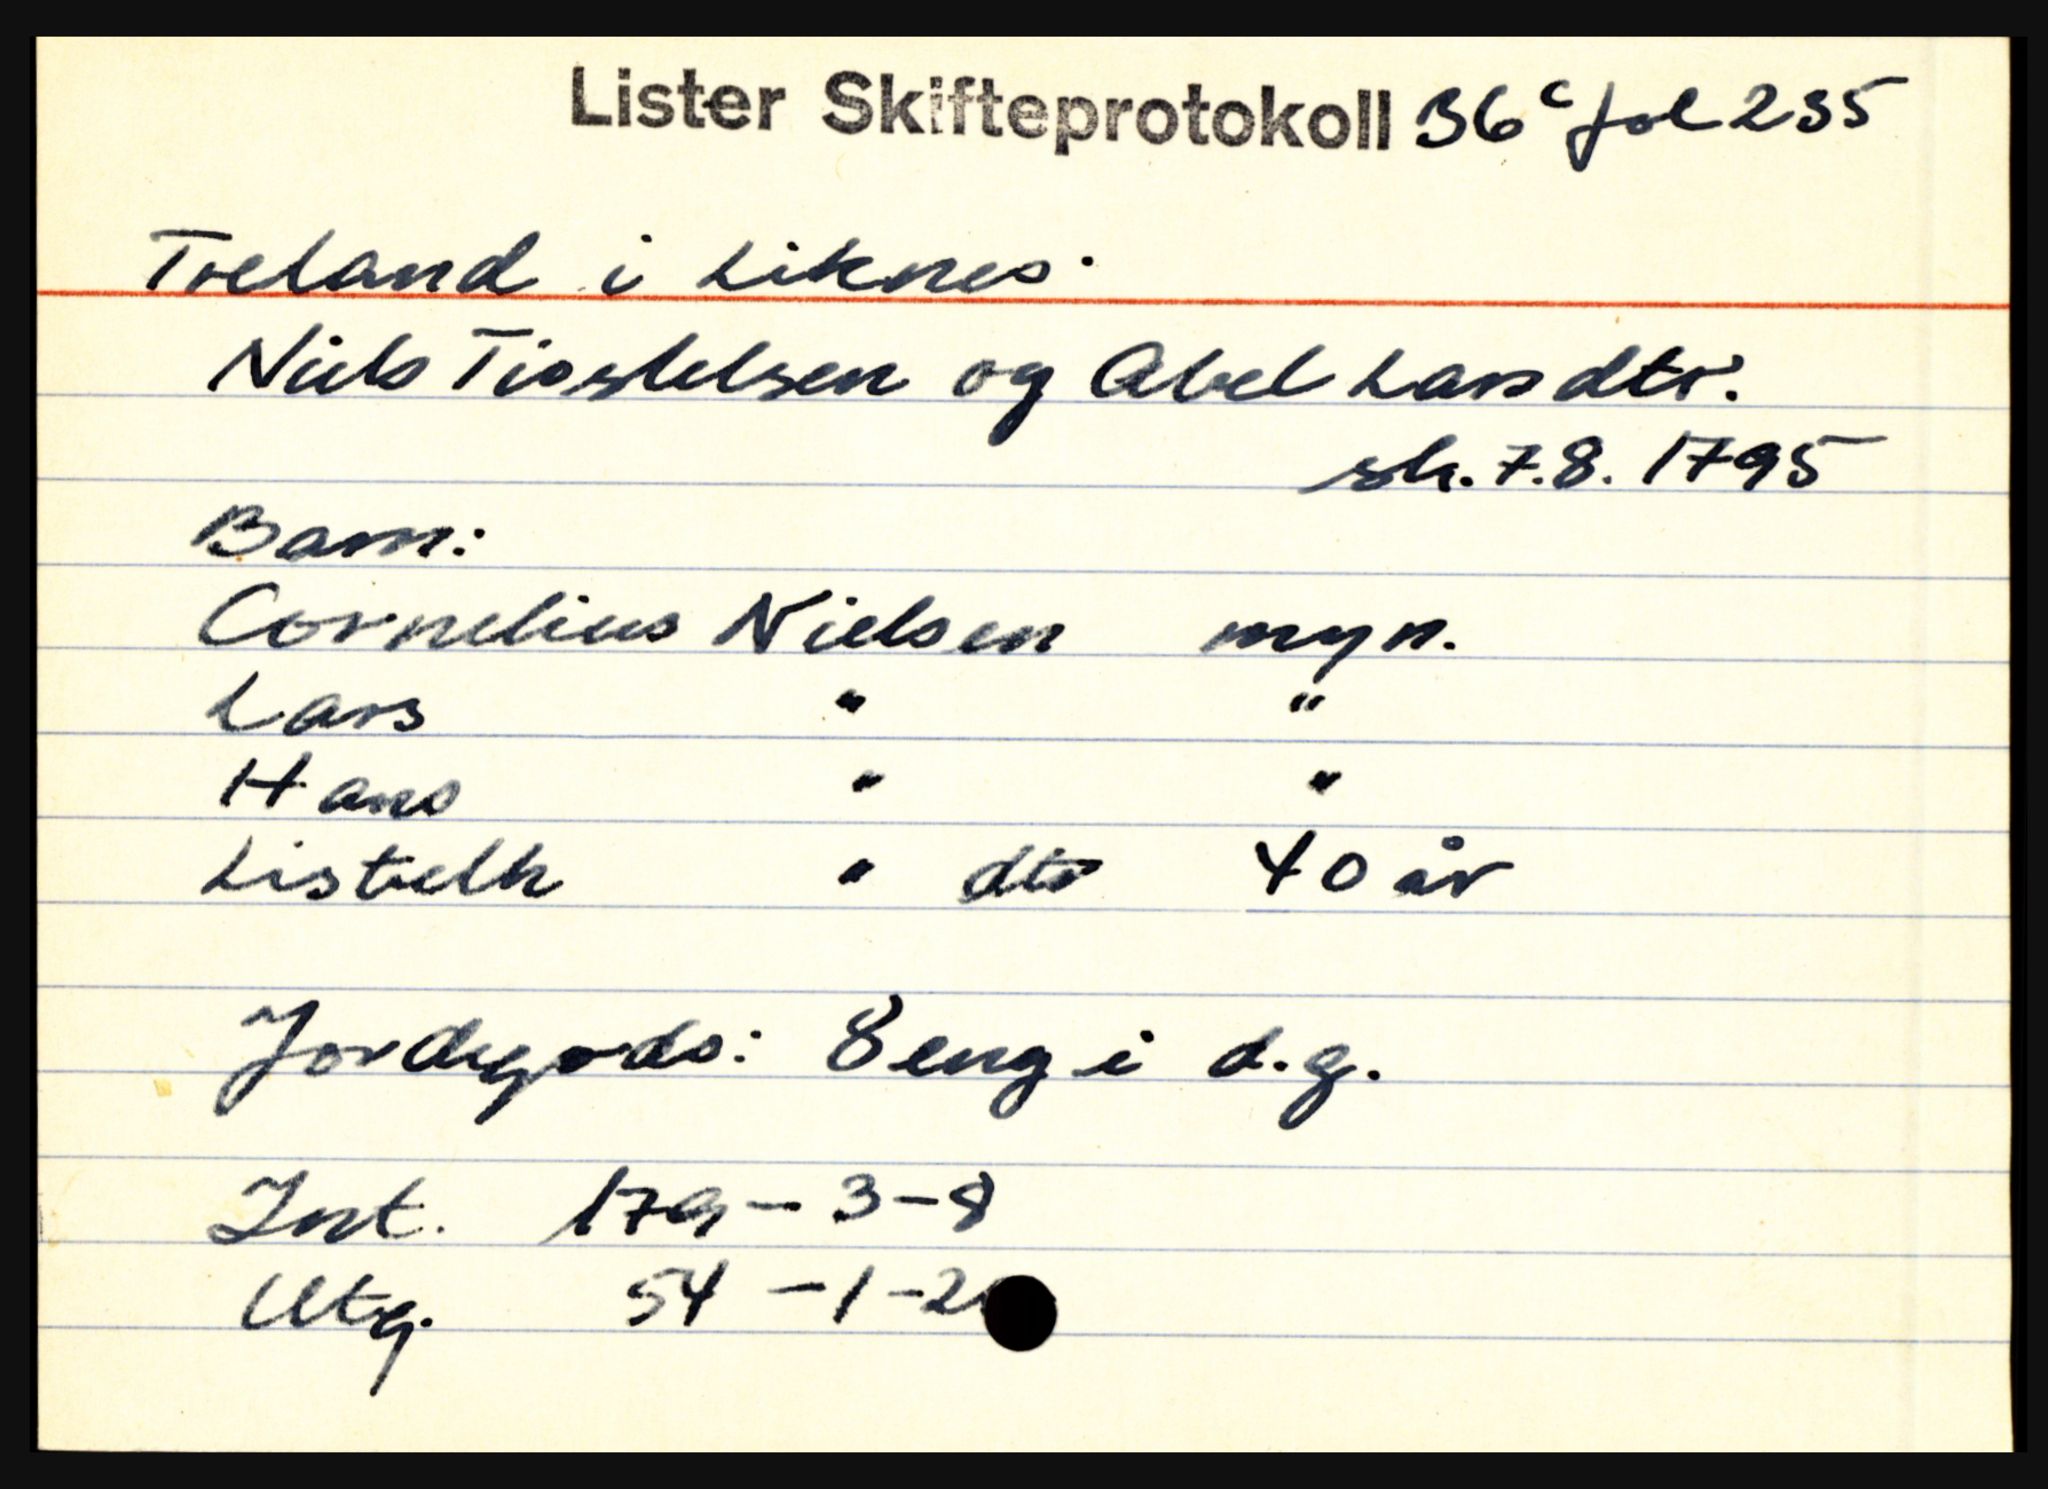 Lister Skifteprotokoll 36c fol 235
Treland i Liknes.
Niels Tiostelsen og Abel Larsdtr.
sk. 7.8. 1795
Barn:
Cornelius Nielsen myn.
Lars " "
Hans " "
Listreth " dtr 40 år
Jordegods: 8 eng i d.g.
Int. 179-3-8
Utg. 54-1-2